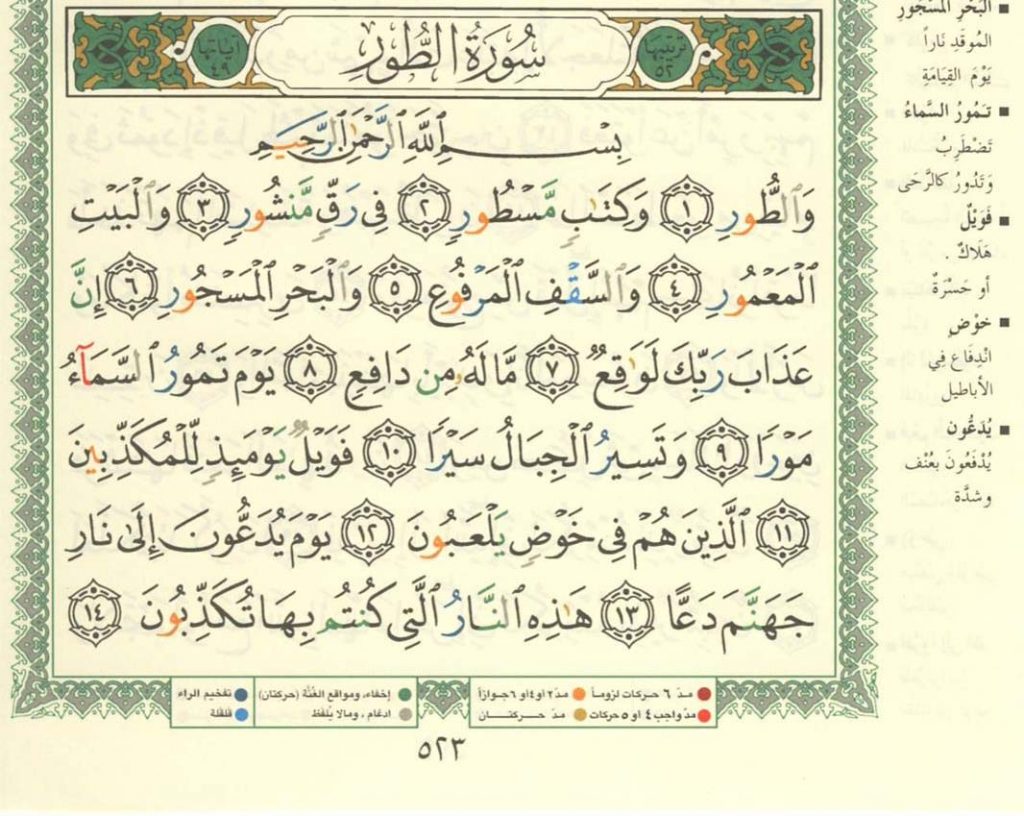 ترتيبها ٥٢
سُورَةُ الطُّورِ
آياتها ٤٩
بِسْمِ ٱللَّهِ ٱلرَّحْمَٰنِ ٱلرَّحِيمِ
وَٱلطُّورِ ١ وَكِتَٰبٍ مَّسْطُورٍ ٢ فِى رَقٍّ مَّنشُورٍ ٣ وَٱلْبَيْتِ
ٱلْمَعْمُورِ ٤ وَٱلسَّقْفِ ٱلْمَرْفُوعِ ٥ وَٱلْبَحْرِ ٱلْمَسْجُورِ ٦ إِنَّ
عَذَابَ رَبِّكَ لَوَٰقِعٌ ٧ مَّا لَهُۥ مِن دَافِعٍ ٨ يَوْمَ تَمُورُ ٱلسَّمَآءُ
مَوْرًا ٩ وَتَسِيرُ ٱلْجِبَالُ سَيْرًا ١٠ فَوَيْلٌ يَوْمَئِذٍ لِّلْمُكَذِّبِينَ
١١ ٱلَّذِينَ هُمْ فِى خَوْضٍ يَلْعَبُونَ ١٢ يَوْمَ يُدَعُّونَ إِلَىٰ نَارِ
جَهَنَّمَ دَعًّا ١٣ هَٰذِهِ ٱلنَّارُ ٱلَّتِى كُنتُم بِهَا تُكَذِّبُونَ ١٤
■ البَحْرِ المَسْجُورِ
المُوقَدِ نَاراً
يَوْمَ القِيَامَةِ
■ تَمُورُ السَّمَاءُ
تَضْطَرِبُ
وَتَدُورُ كالرَّحَى
■ فَوَيْلٌ
هَلَاكٌ .
أو حَسْرَةٌ
■ خَوْضٍ
انْدِفَاعٍ فِي
الأباطيل
■ يُدَعُّون
يُدْفَعُونَ بعُنْف
وشدَّةٍ
مدّ ٦ حركات لزوماً
مدّ ٢ او ٤ او ٦ جوازاً
مدّ واجب ٤ او ٥ حركات
مدّ حركتان
إخفاء، ومواقع الغُنَّة (حركتان)
تفخيم الراء
ادغام ، ومالا يُلفَظ
قلقلة
٥٢٣